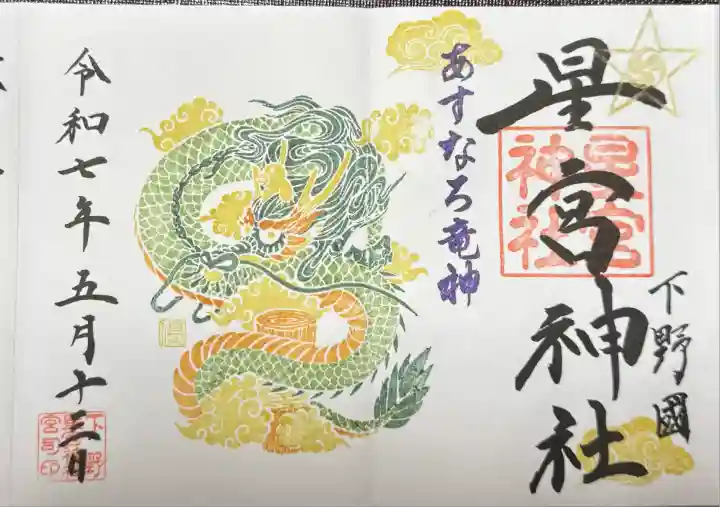 下野國
星宮神社
星宮神社
あすなろ竜神
令和七年五月十三日
下野
星宮神社
宮司印